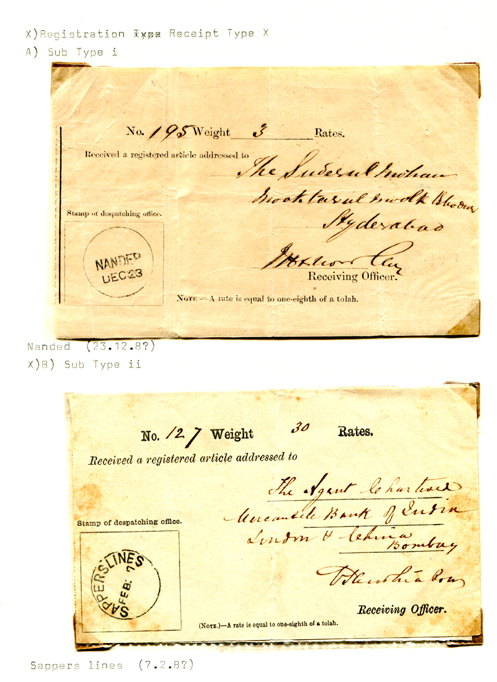 X)Registration Receipt Type X
A) Sub Type i
No. 195 Weight 3 Rates.
Received a registered article addressed to
The
Hyderabad
Stamp of despatching office.
NANDER
DEC 23
Receiving Officer.
NOTE.—A rate is equal to one-eighth of a tolah.
Nanded (23.12.8?)
X)B) Sub Type ii
No. 127 Weight 30 Rates.
Received a registered article addressed to
The Agent Chartered
Mercantile Bank of India
London & China
Bombay
Stamp of despatching office.
SAPPERSLINES
FEB. 7
Receiving Officer.
(NOTE.)—A rate is equal to one-eighth of a tolah.
Sappers lines (7.2.8?)